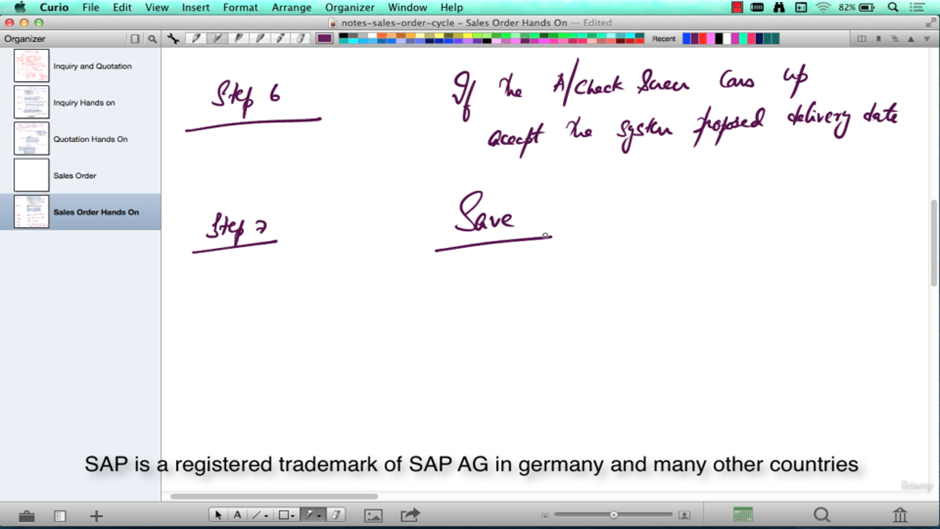 Curio File Edit View Insert Format Arrange Organizer Window Help 82%
notes-sales-order-cycle - Sales Order Hands On — Edited
Organizer
Recent
Inquiry and Quotation
Inquiry Hands on
Quotation Hands On
Sales Order
Sales Order Hands On
Step 6
If the A/Check Screen Coms up
accept the system proposed delivery date
Step 7
Save
SAP is a registered trademark of SAP AG in germany and many other countries
Udemy
A